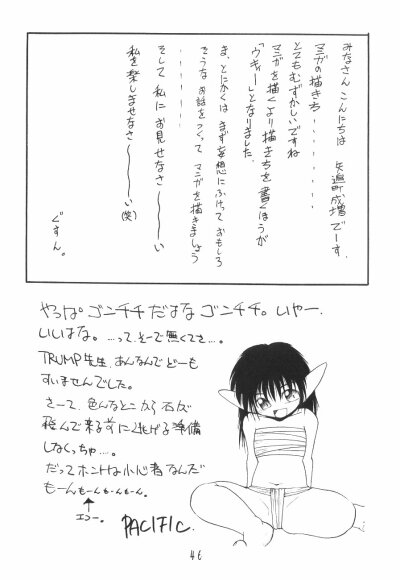 みなさんこんにちは 矢追町成増でーす.
マンガの描きち・・・・・・・
とてもむずかしいですね
マンガを描くより描きちを書くほうが
「ウキィー」となりました.
ま、とにかくはまず妄想にふけっておもしろ
そうなお話をつくってマンガを描きましょう
・・・・・・
そして私にお見せなさ〜〜〜い
私を楽しませなさ〜〜〜い(笑)
ぐすん。
やっぱ。ゴンチチだはなゴンチチ。いやー、
いいはな。…って、そーで無くてさ…。
TRUMP先生、あんなんでどーも
すいませんでした。
さーて、色んなとこから石が
飛んで来る前に逃げる準備
しなくっちゃ…。
だってホントは小心者なんだ
もーんもーんもーんもーん。
エコー。
PACIFIC.
46